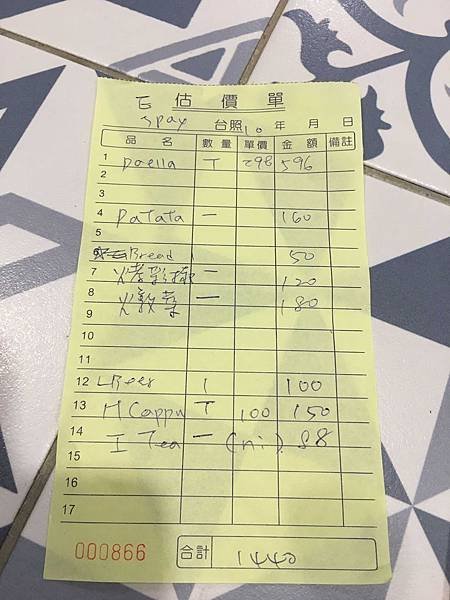 E 估價單
spay 台照 10 年 月 日
品名 數量 單價 金額 備註
1 paella T 298 596
2
3
4 patata 一 160
5
Bread 1 50
7 火烤 一 120
8 一 180
9
10
11
12 LBeer 1 100
13 H Cappu T 100 150
14 I Tea 一 (ni). 88
15
16
17
000866 合計 1440